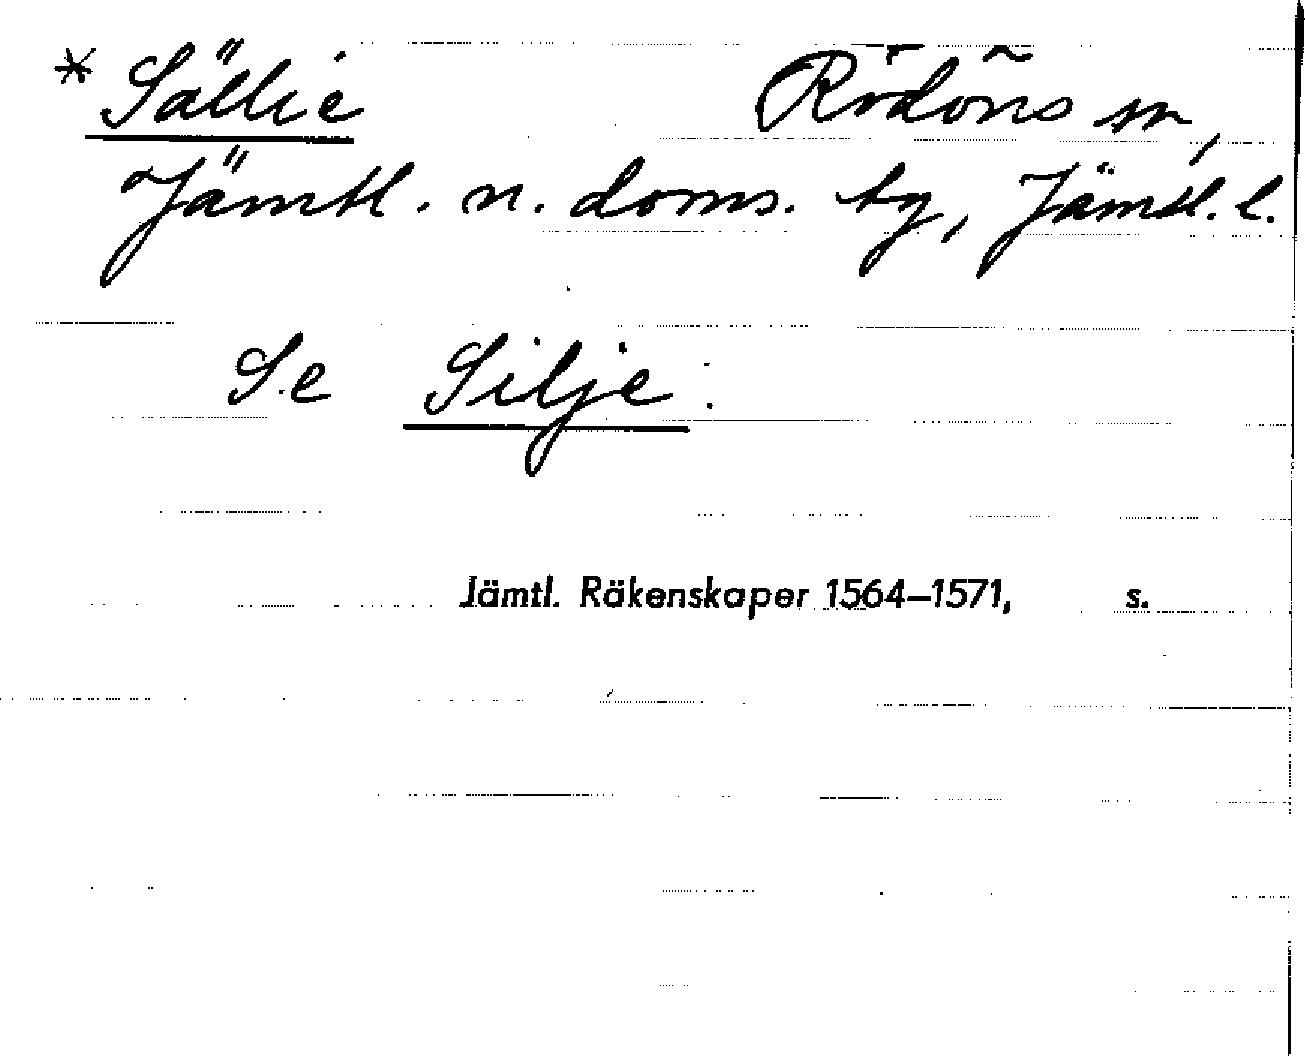 * Sällie Rödöns sn,
Jämtl. n. doms. tg, Jämtl. l.
Se Silje.
Jämtl. Räkenskaper 1564–1571, s.